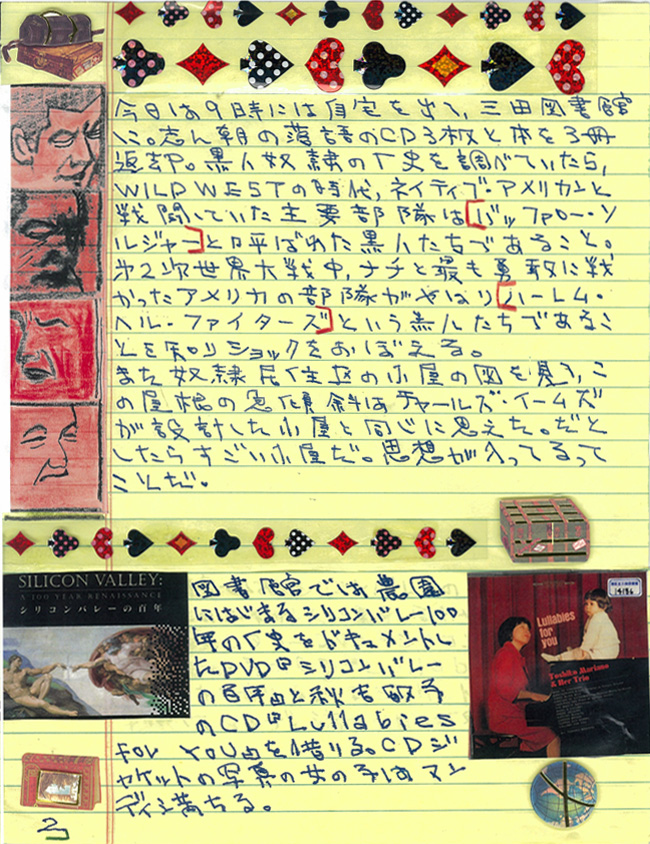 今日は9時には自宅を出て、三田図書館
に。志ん朝の落語のCD3枚と本を3冊
返却。黒人奴隷の歴史を調べていたら、
WILD WESTの時代、ネイティブ・アメリカンと
戦闘していた主要部隊は[バッファロー・ソ
ルジャー]と呼ばれた黒人たちであること。
第2次世界大戦中、ナチと最も勇敢に戦
かったアメリカの部隊がやはり[ハーレム・
ヘル・ファイターズ]という黒人たちであるこ
とを知りショックをおぼえる。
また奴隷居住区の小屋の図を見う、こ
の屋根の傾斜はチャールズ・イームズ
が設計した小屋と同じに思えた。だと
したらすごい小屋だ。思想が入ってるって
ことだ。
SILICON VALLEY:
A 100 YEAR RENAISSANCE
シリコンバレーの百年
図書館では農園
にはじまるシリコンバレー100
年の歴史をドキュメントし
たDVD『シリコンバレー
の百年』と秋吉敏子
のCD『Lullabies
for you』を借りる。CDジ
ャケットの写真の女の子はマン
ディ満ちる。
14186
Lullabies
for you
Toshiko Mariano
& Her Trio
2